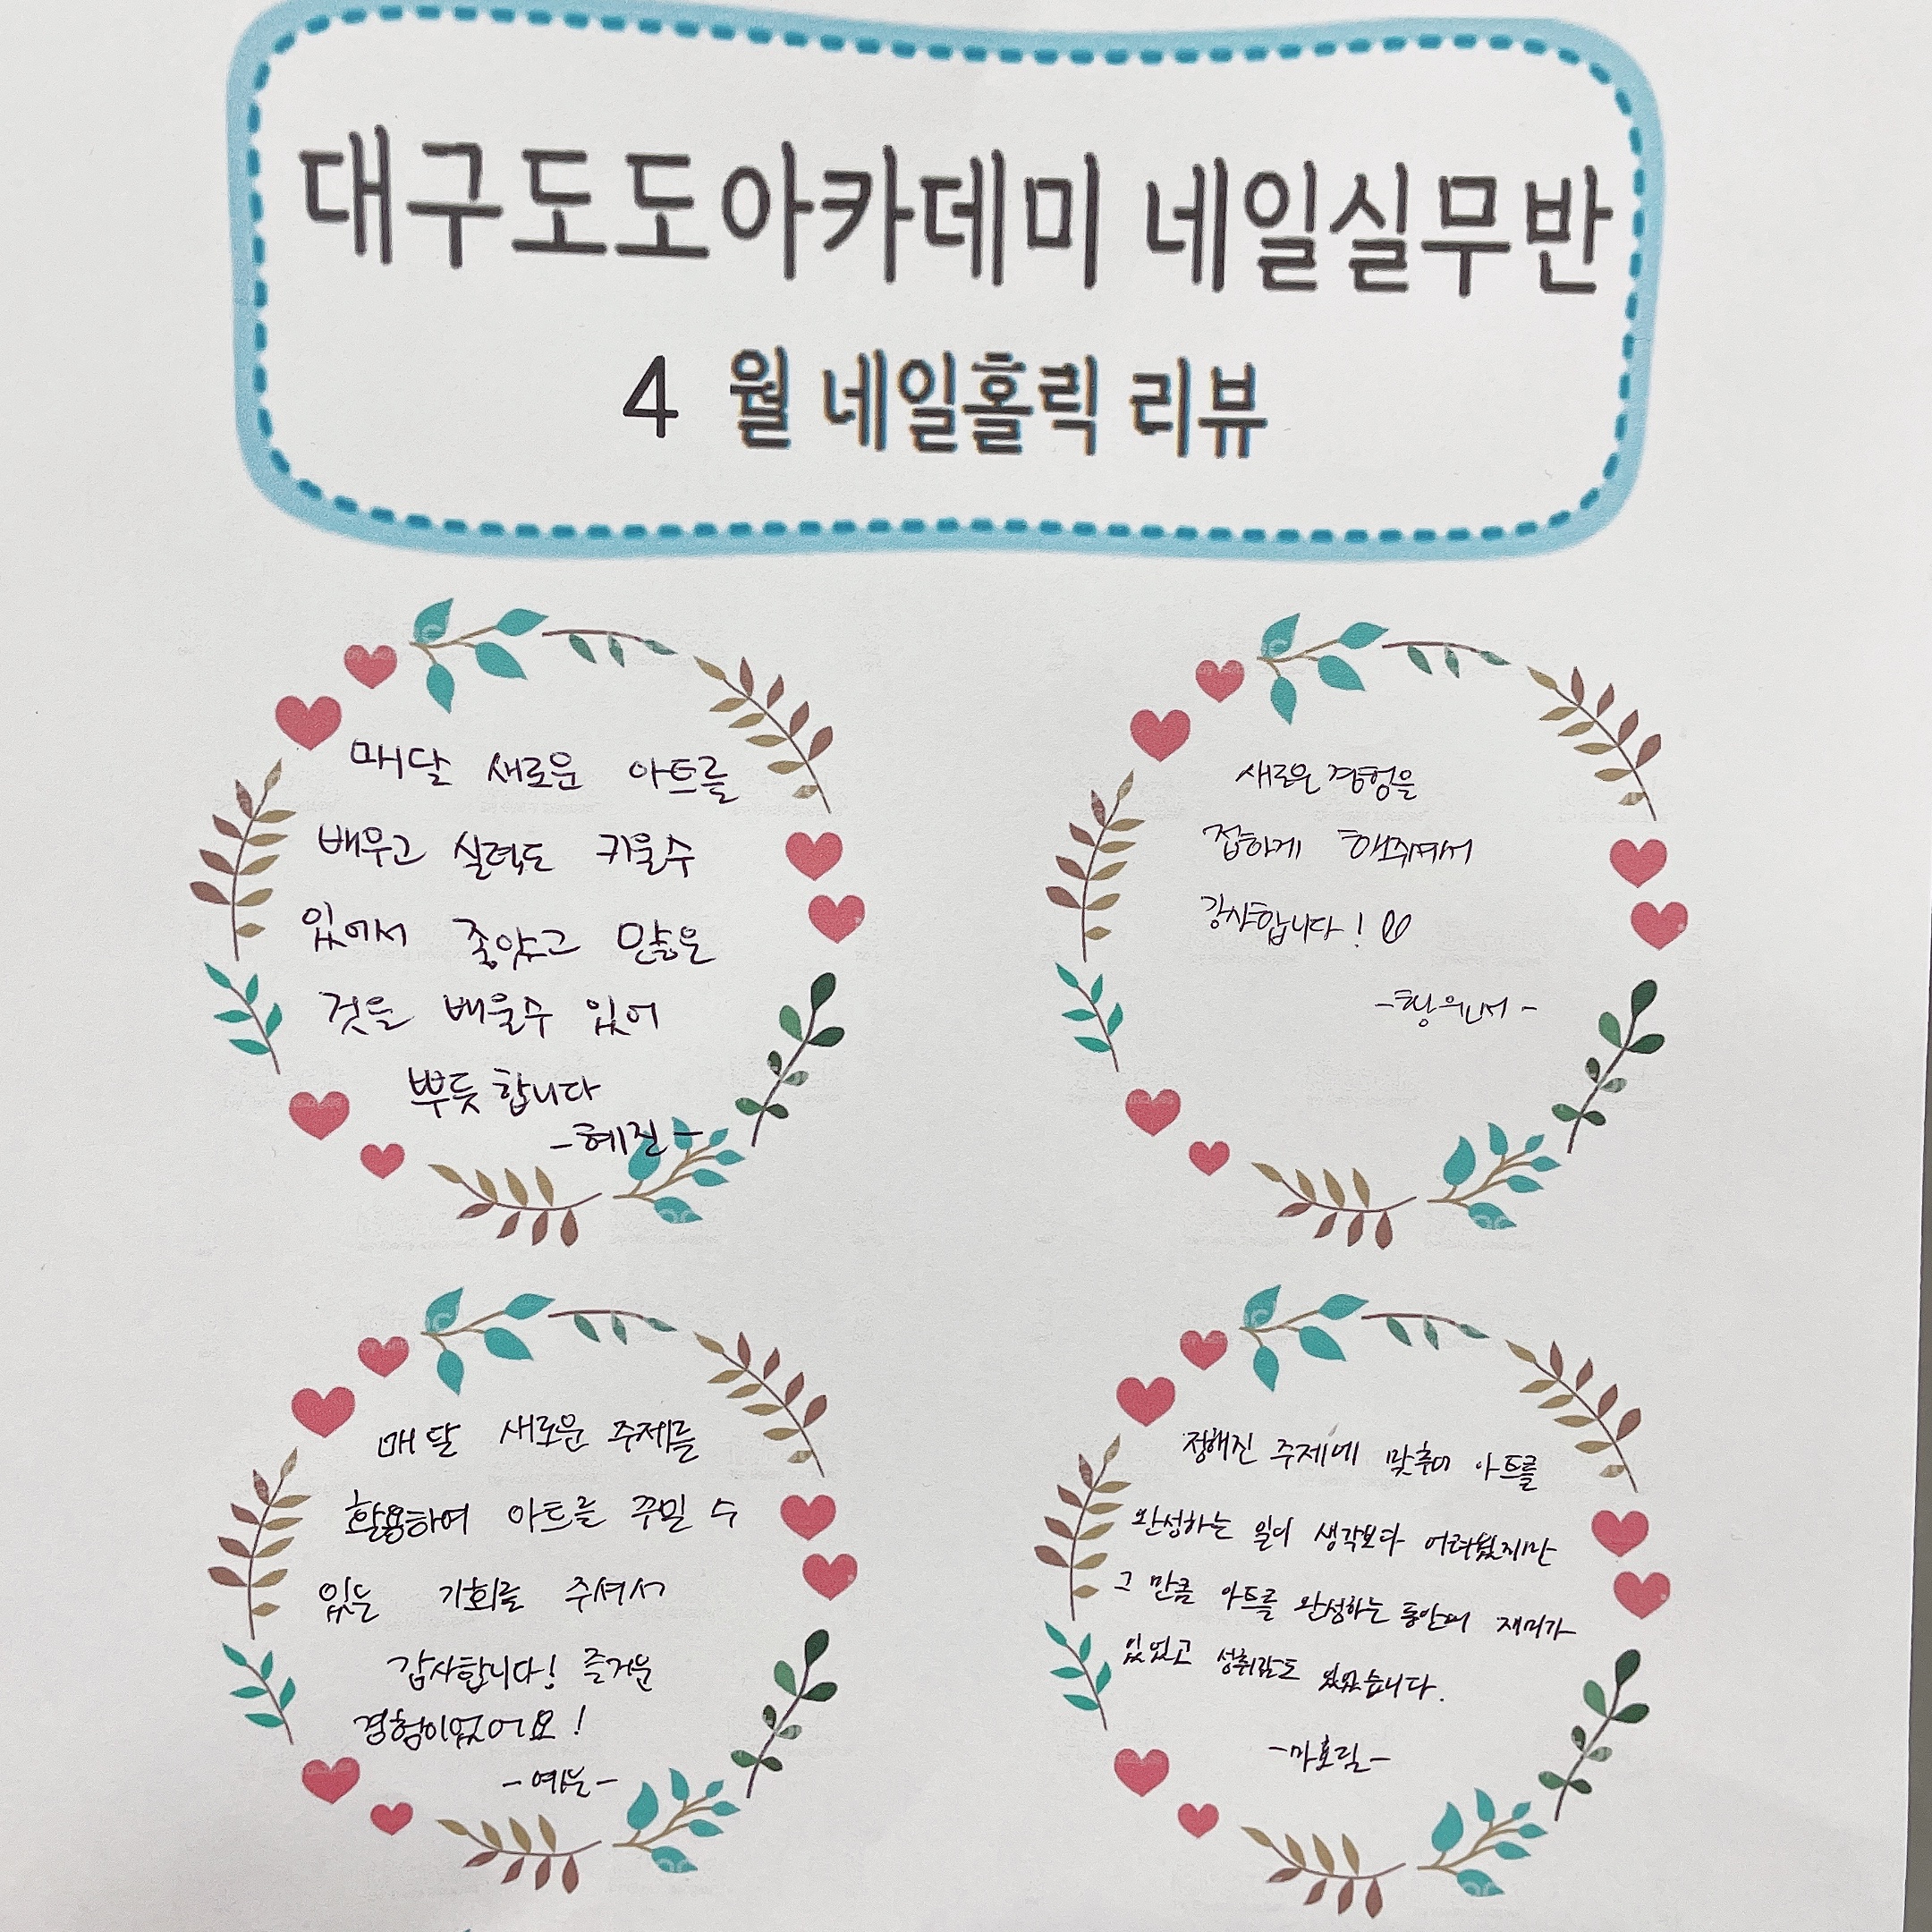 대구도도아카데미 네일실무반
4 월 네일홀릭 리뷰
매달 새로운 아트를
배우고 실력도 키울수
있어서 좋았고 많은
것을 배울수 있어
뿌듯합니다
-혜진-
새로운 경험을
접하게 해주셔서
감사합니다!
매달 새로운 주제를
활용하여 아트를 꾸밀 수
있는 기회를 주셔서
감사합니다! 즐거운
경험이었어요!
정해진 주제에 맞추어 아트를
완성하는 일이 생각보다 어려웠지만
그 만큼 아트를 완성하는 동안에 재미가
있었고 성취감도 있었습니다.